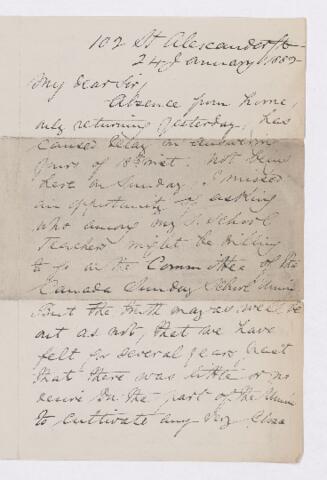 102 St Alexander St
24 January 1882
My dear Sir,
Absence from home,
only returning yesterday, has
caused delay in answering
yours of 18 inst. Not being
here on Sunday, I missed
an opportunity of asking
who among my S. School
Teachers might be willing
to go on the Committee of the
Canada Sunday School Union
But the truth may as well be
out as not, that we have
felt for several years past
that there was little or no
desire on the part of the Union
to cultivate any very close